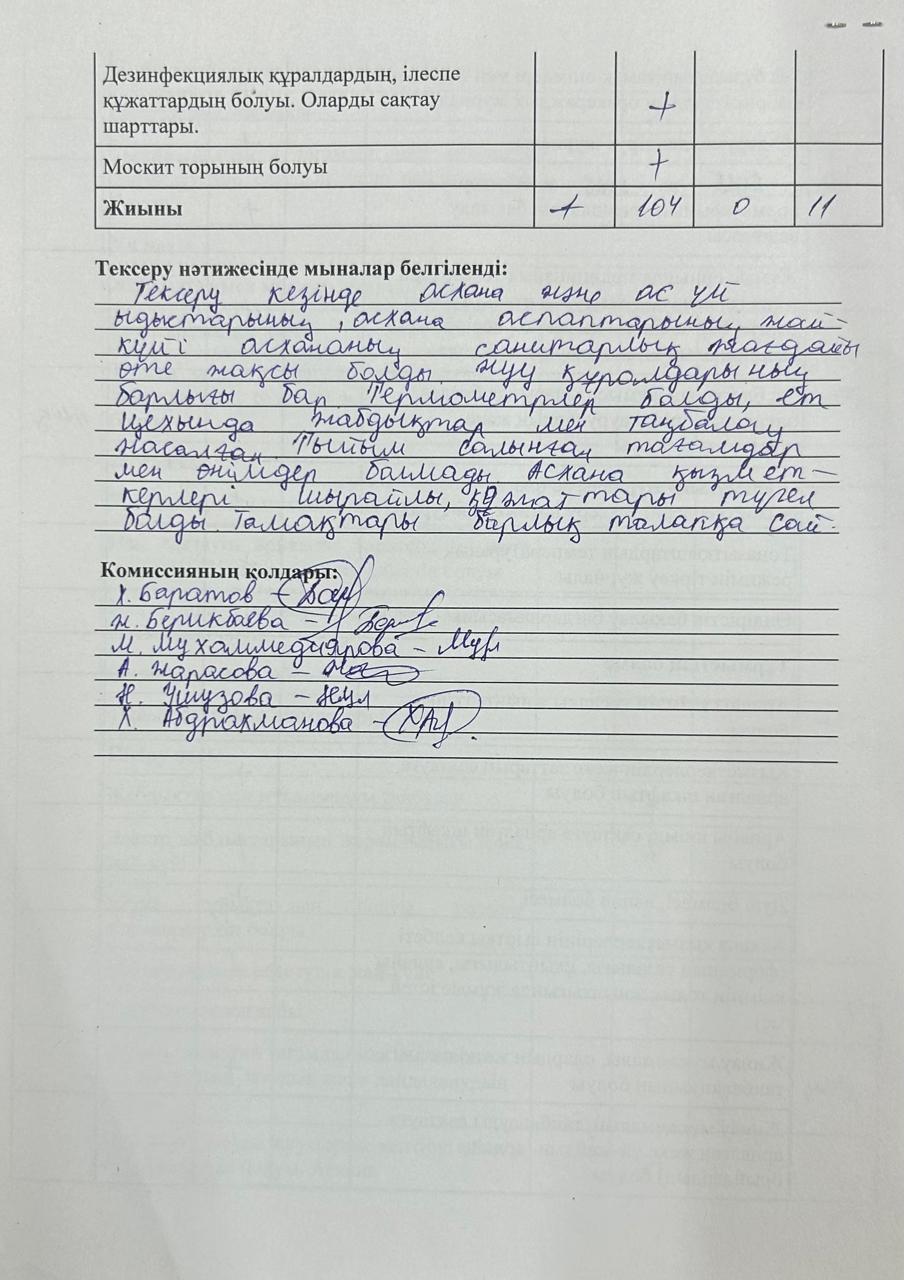 Дезинфекциялық құралдардың, ілеспе
құжаттардың болуы. Оларды сақтау
шарттары.
+
Москит торының болуы
+
Жиыны + 104 0 11
Тексеру нәтижесінде мыналар белгіленді:
Тексеру кезінде асхана және ас үй
ыдыстарының, асхана аспаптарының, жай-
күйі асхананың санитарлық жағдайы
өте жақсы болды. Жуу құралдарының
барлығы бар. Термометрлер болды, ет
цехында жабдықтар мен таңбалау
жасалған. Тыйым салынған тағамдар
мен өнімдер балмады. Асхана қызмет-
керлері шырайлы, құжаттары түгел
болды. Тамақтары барлық талапқа сай.
Комиссияның қолдары:
Х. Баратов -
Ж. Берикбаева -
М. Мухаммедиярова -
А. Жарасова -
Н. Ушузова -
Х. Абдрахманова -